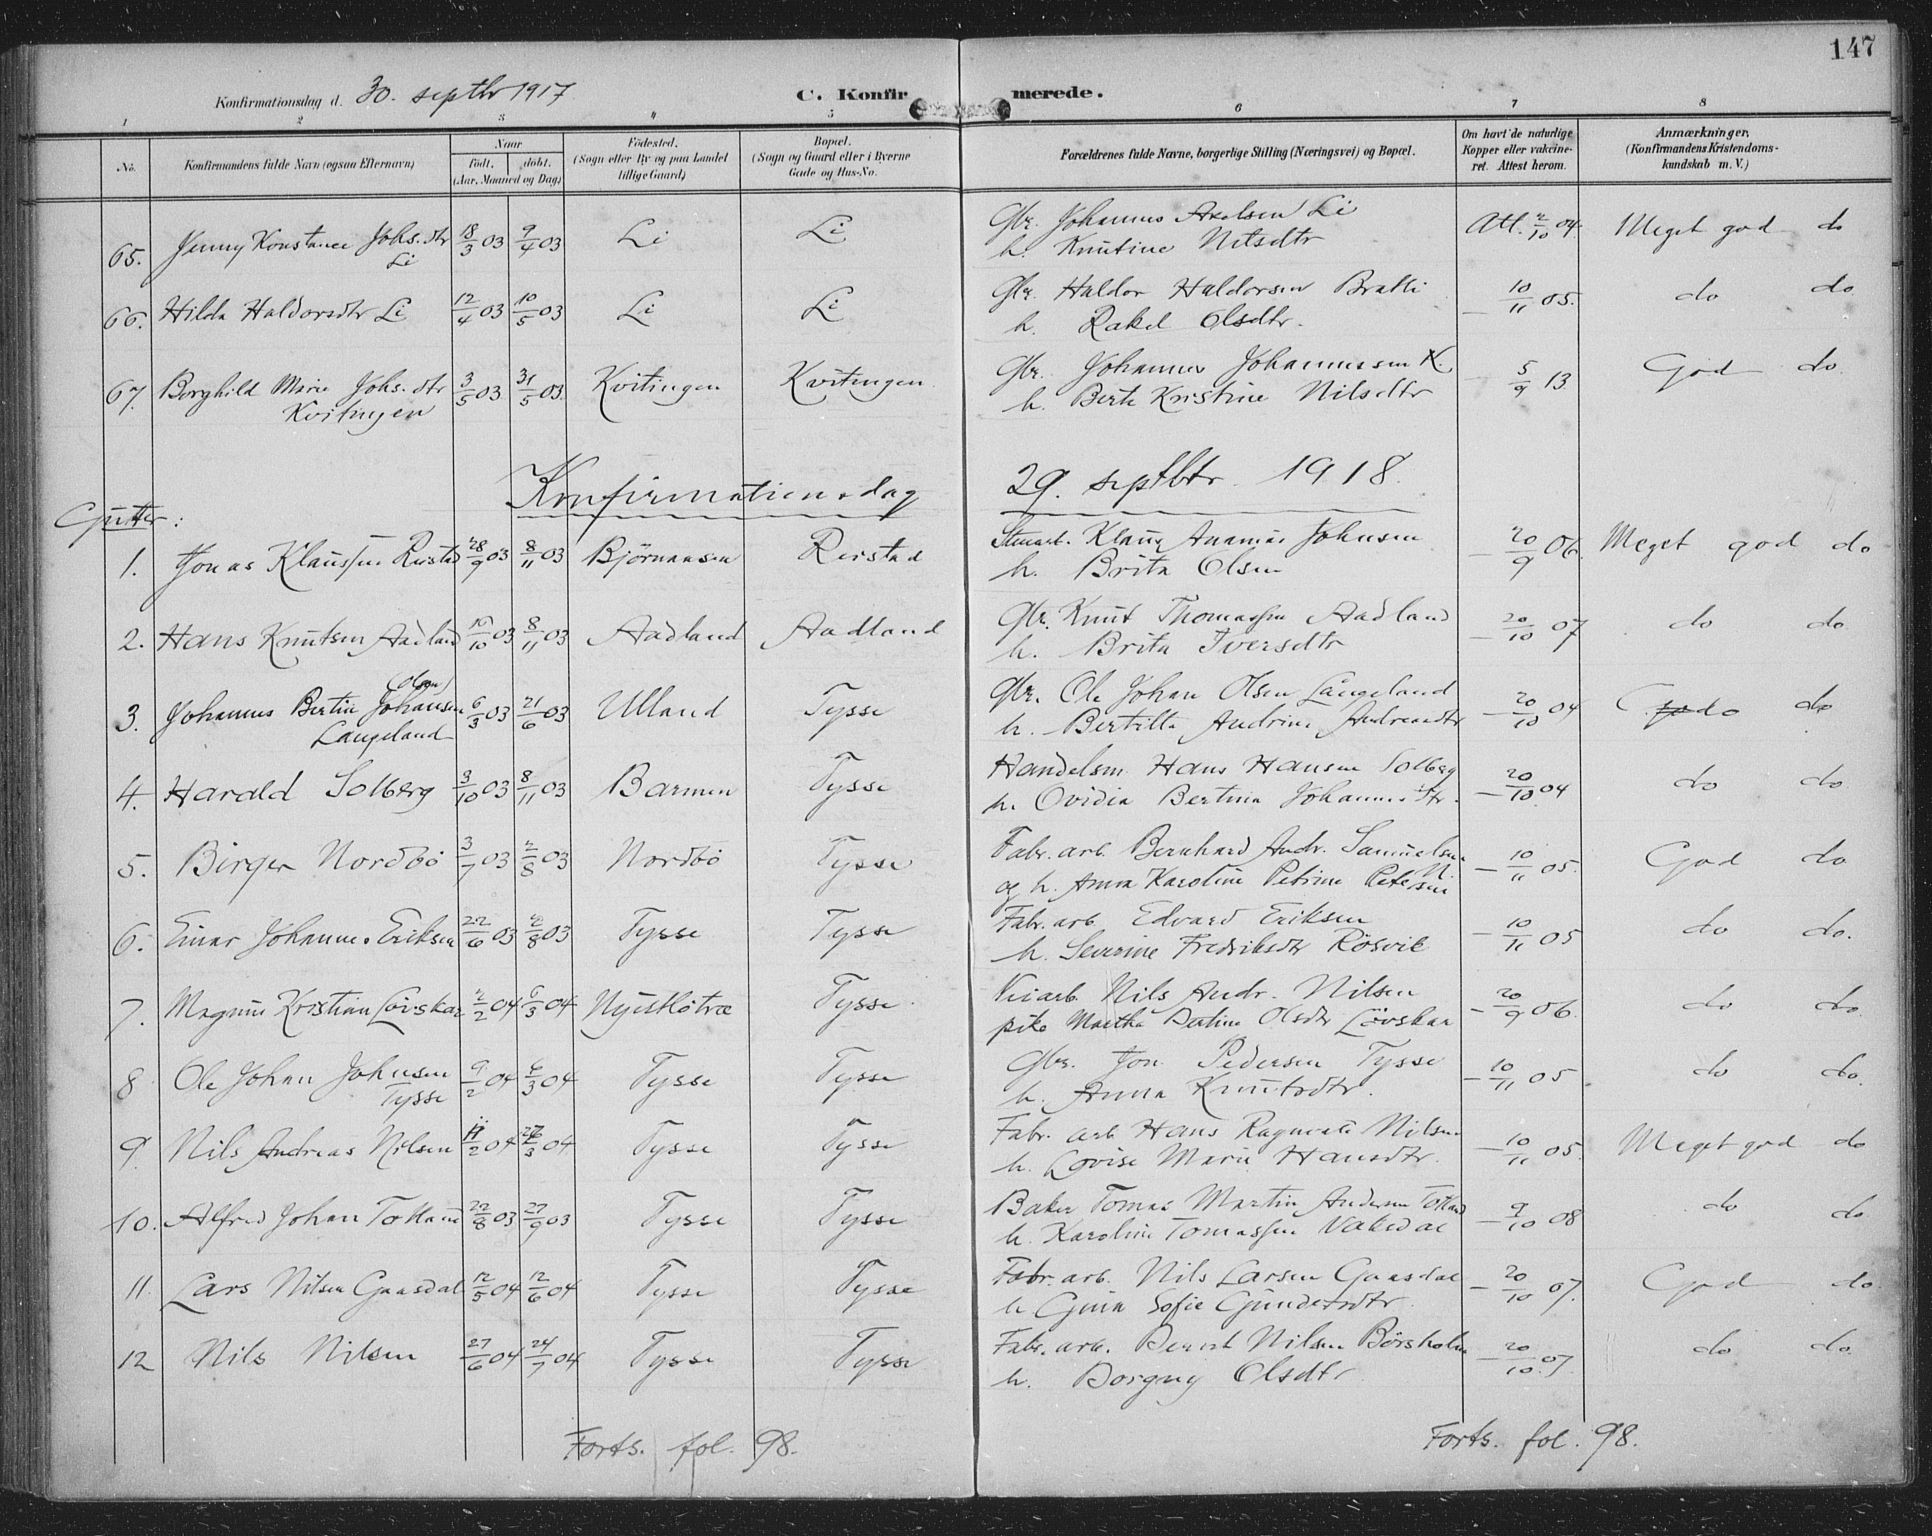 147
Konfirmationsdag d. 30. septbr 1917 C. Konfirmerede.
1 2 3 4 5 6 7 8
No. Konfirmandens fulde Navn (ogsaa Efternavn) Naar født. døbt. (Aar, Maaned og Dag) Fødested. (Sogn eller By og paa Landet tillige Gaard) Bopæl. (Sogn og Gaard eller i Byerne Gade og Hus-No. Forældrenes fulde Navne, borgerlige Stilling (Næringsvei) og Bopæl. Om havt de naturlige Kopper eller vakcineret. Attest herom. Anmærkninger. (Konfirmandens Kristendomskundskab m. V.)
65. Jenny Konstance Johs.dtr Li 18/3 03 9/4 03 Li Li Gbr. Johannes Axelsen Li
h. Knutine Nilsdtr Att. 2/10 04. Meget god do
66. Hilda Haldorsdtr Li 12/4 03 10/5 03 Li Li Gbr. Haldor Haldorsen Bratli
h. Rakel Olsdtr. – 10/11 05. do do
67. Borghild Marie Johs.dtr Kvitingen 3/5 03 31/5 03 Kvitingen Kvitingen Gbr. Johannes Johannessen K.
h. Berte Kristine Nilsdtr – 5/9 13. God do
Konfirmationsdag 29. septbr. 1918.
Gutter:
1. Jonas Klaussen Reistad 28/9 03 8/11 03 Björnaasen Reistad Stuert. Klaus Ananias Johnsen
h. Brita Olsen – 20/9 06. Meget god do
2. Hans Knutsen Aadland 10/10 03 8/11 03 Aadland Aadland Gbr. Knut Thomassen Aadland
h. Brita Iversdtr – 20/10 07 do do
3. Johannes Bertin Johansen (Olsen) Langeland 6/3 03 21/6 03 Ulland Tysse Gbr. Ole Johan Olsen Langeland
h. Bertilla Andrine Andreasdtr – 20/10 04 do do
4. Harald Solberg 3/10 03 8/11 03 Barmen Tysse Handelsm. Hans Hansen Solberg
h. Ovidia Bertina Johannesdtr. – 20/10 04 do do
5. Birger Nordbö 3/7 03 2/8 03 Nordbö Tysse Fabr. arb. Bernhard Andr. Samuelsen N.
og h. Anna Karoline Petrine Petersen – 10/11 05. God do
6. Einar Johannes Eriksen 22/6 03 2/8 03 Tysse Tysse Fabr. arb. Edvard Eriksen
h. Severine Fredriksdtr Rösvik – 10/11 05 do do.
7. Magnus Kristian Lövskar 2/2 04 6/3 04 Tysse Veiarb. Nils Andr. Nilsen
pike Martha Bertine Olsdtr Lövskar – 20/9 06. do do.
8 Ole Johan Johnsen Tysse 9/2 04 6/3 04 Tysse Tysse Gbr. Jon Pedersen Tysse
h. Anna Knutsdtr. – 10/11 05 do do.
9. Nils Andreas Nilsen 11/2 04 27/3 04 Tysse Tysse Fabr. arb Hans Ragnvald Nilsen
h. Lovise Marie Hansdtr. – 10/11 05. Meget god do
10. Alfred Johan Totland 22/8 03 27/9 03 Tysse Tysse Baker Tomas Martin Andersen Totland
h. Karoline Tomassen Vaksdal – 9/10 08 do do
11. Lars Nilsen Gaasdal 12/5 04 12/6 04 Tysse Tysse Fabr. arb. Nils Larsen Gaasdal
h Gina Sofie Gundersdtr. – 20/10 07. God do.
12 Nils Nilsen 27/6 04 24/7 04 Tysse Tysse Fabr. arb. Bernt Nilsen Börsholm
h. Borgny Olsdtr – 20/10 07. do do.
Forts. fol. 98. Forts. fol. 98.